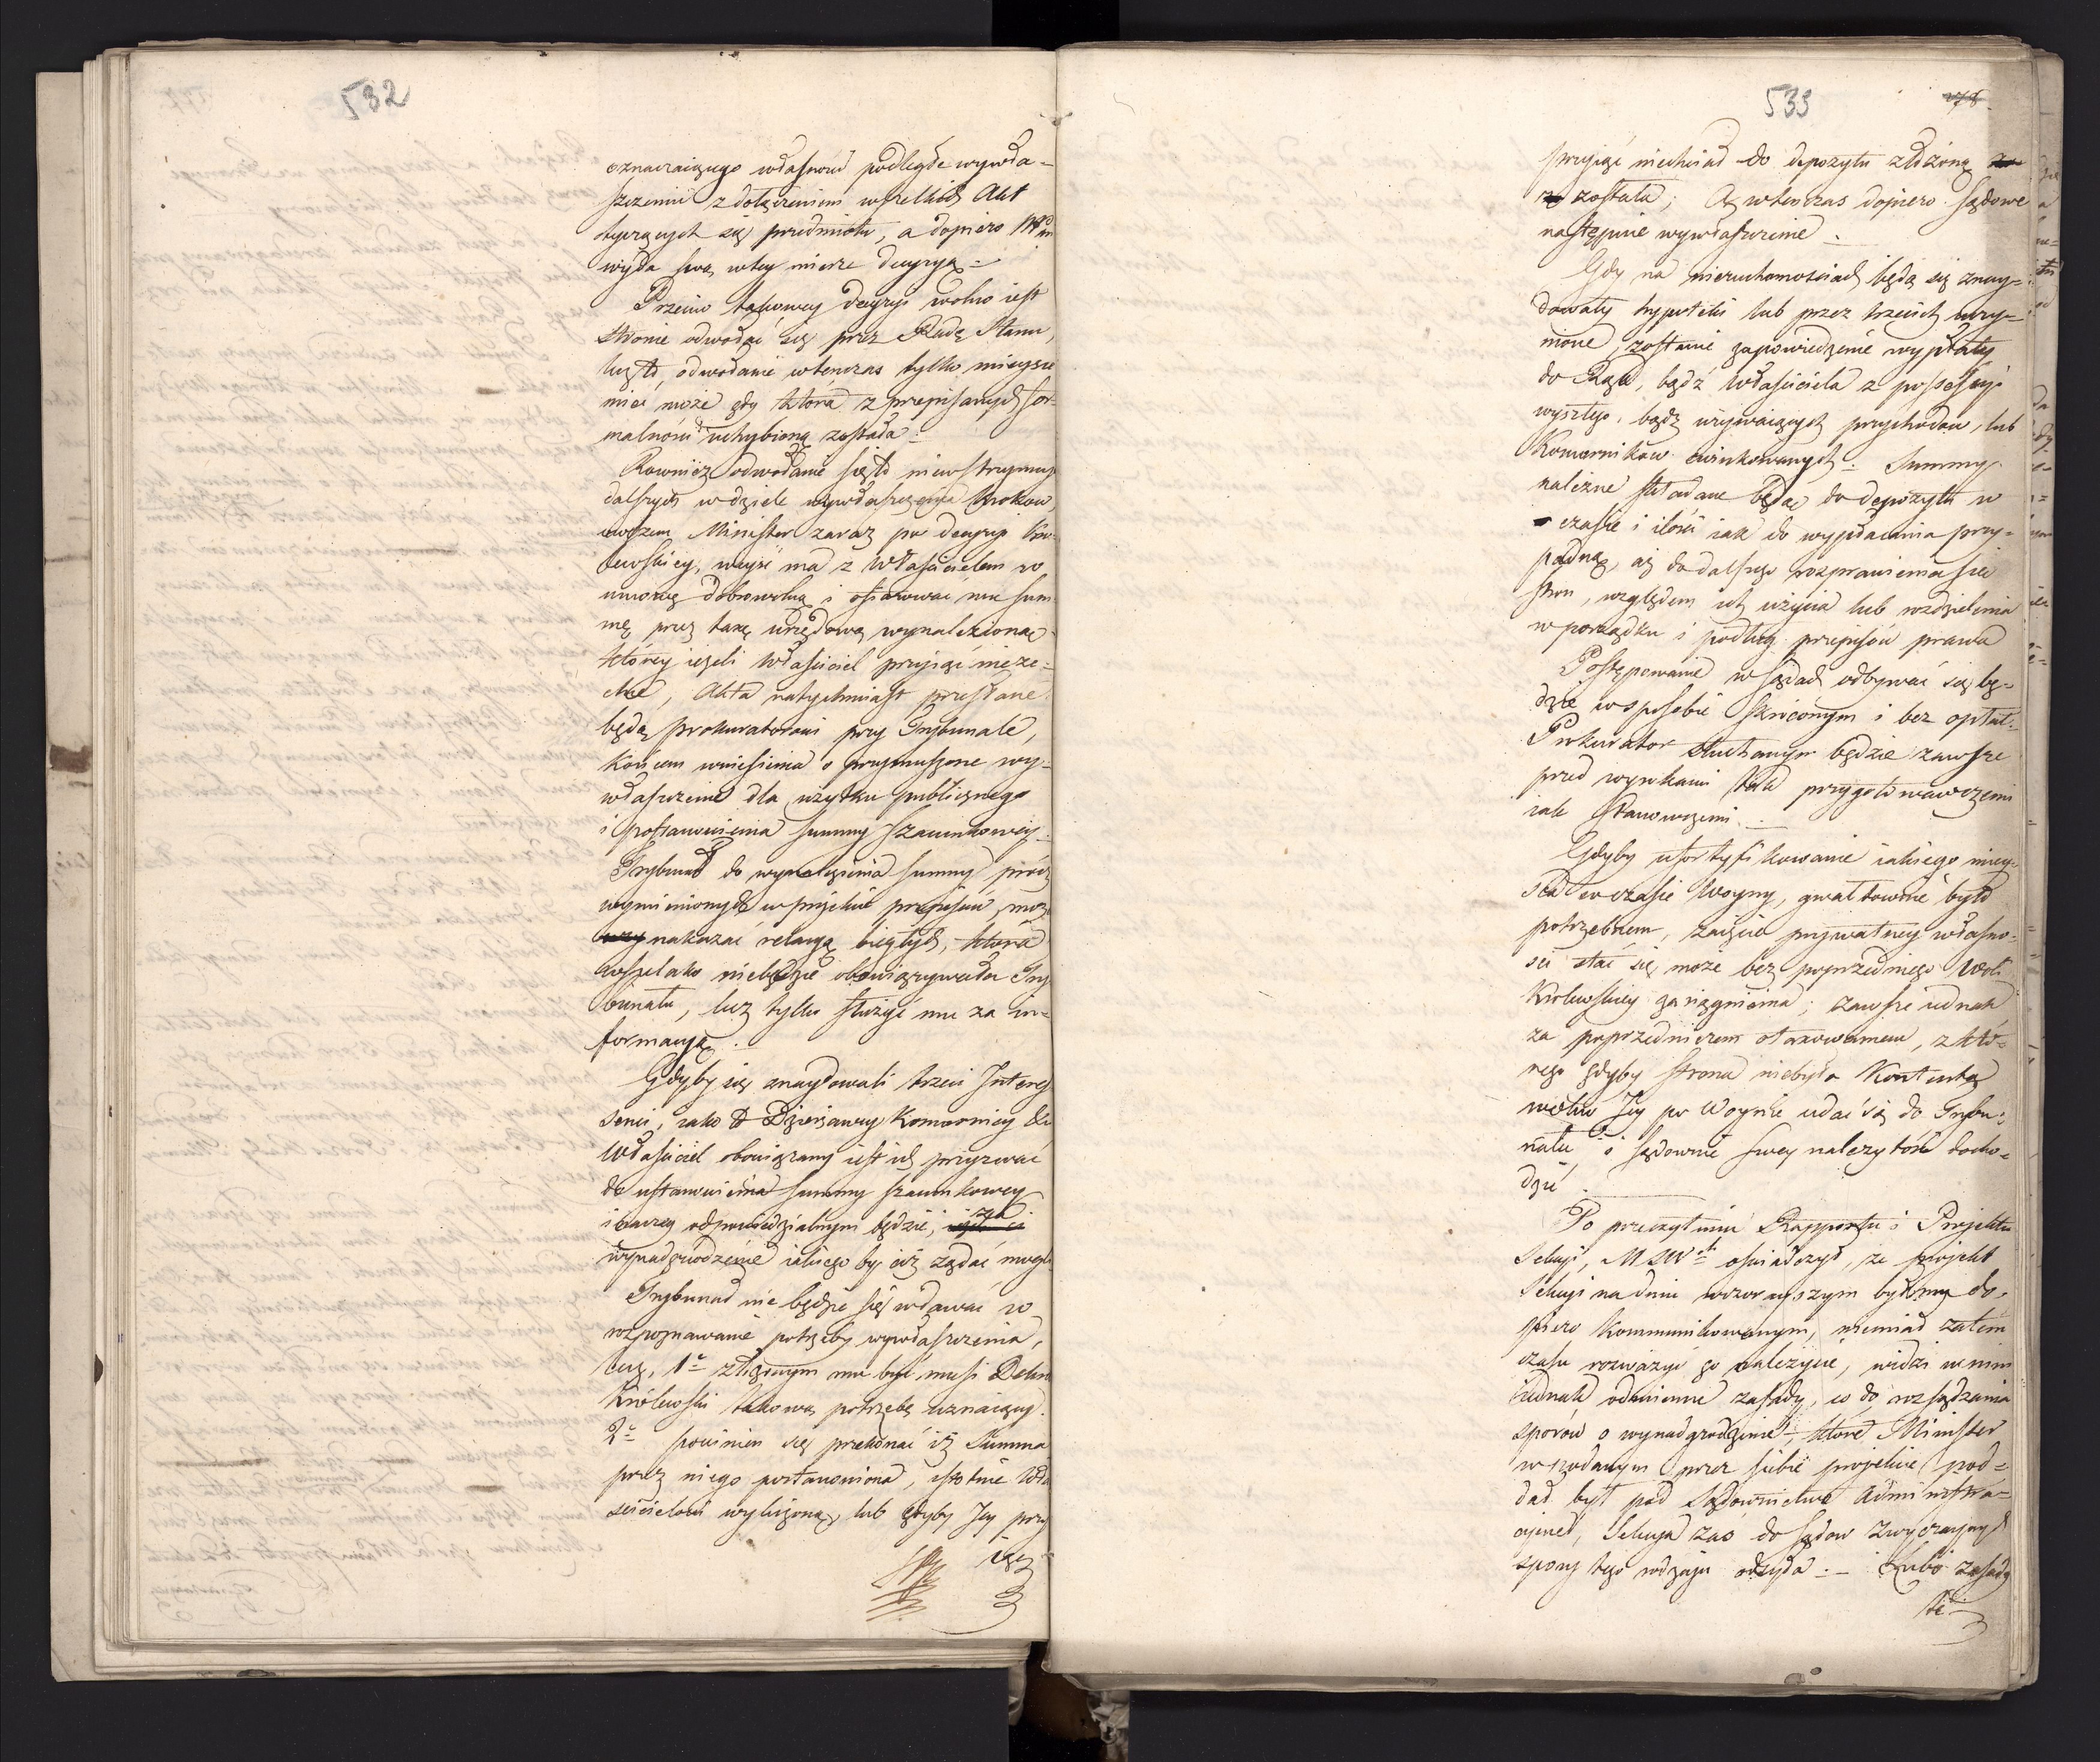 532
oznaczaiącego własność podległe wywła-
szczeniu z dołączeniem wszelkich Akt
tyczących się przedmiotu, a dopiero
wyda swą w tey mierze decyzyą.
Przeciw takowey decyzyi wolno iest
stronie odwołać się przez Radę Stanu,
lecz to odwołanie wtenczas tylko mieysce
mieć może gdy która z przepisanych for-
malności uchybioną została.
Rownież odwołanie się to niewstrzymuje
dalszych w dziele wywłaszczenia krokow,
owszem Minister zaraz po decyzyi Kro-
lewskiey, weyść ma z Właścicielem w
umowę dobrowolną i ofiarować mu sum-
mę przez taxę urzędową wynalezioną
którey ieżeli Właściciel przyiąć nieze-
chce, Akta natychmiast przesłane
będą prokuratorowi przy Trybunale,
końcem wniesienia o przymuszone wy-
właszczenie dla użytku publicznego
i postanowienia summy szacunkowey.
Trybunał do wynalezienia summy, prócz
wymienionych w projekcie przepisów, może
nakazać relacyą biegłych, która
wszelako niebędzie obowiązywała Try-
bunału, lecz tylko służyć mu za in-
formacyą.
Gdyby się znaydowali trzeci Interes-
senci, iako to Dzierżawcy Komornicy &c
Właściciel obowiązany iest ich przyzwać
do ustanowienia summy szacunkowey
inaczey odpowiedzialnym będzie, za
wynadgrodzenie iakiego by ciż żądać mogli
Trybunał nie będzie się wdawać w
rozpoznawanie potrzeby wywłaszczenia,
lecz, 1e złożonym mu być musi Dekret
Królewski takową potrzebę uznaiący.
2e powinien się przekonać iż Summa
przez niego postanowiona, istotnie Wła-
ścicielowi wyliczoną, lub gdyby Jey przy
iąć
533
przyiąć niechciał do depozytu złożoną
została; Aż wtenczas dopiero sądowe
nastąpi wywłaszczenie.
Gdy na nieruchomościach będą się znay-
dowały hypoteki lub przez trzecich uczy-
nione zostanie zapowiedzenie wypłaty
do Rąk, bądź Właściciela z possessyi
wyszłego, bądź używaiących przychodow, lub
Komorników exmitowanych. Summy
należne składane będą do depozytu w
czasie i ilości iak do wypłacenia przy-
padną, aż do dalszego rozprawienia się
stron, względem ich użycia lub rozdzielenia
w porządku i podług przepisów prawa
Postępowanie w sądach odbywać się bę-
dzie w sposobie skróconym i bez opłat.
Prokurator słuchanym będzie zawsze
przed wyrokami tak przygotowawczemi
iak stanowczemi.
Gdyby ufortyfikowanie iakiego miey-
sca w czasie Woyny, gwałtownie było
potrzebnem, zaięcie prywatney własno-
ści stać się może bez poprzedniego Woli
Królewskiey zasiągnienia; zawsze iednak
za poprzedniczem otaxowaniem, z któ-
rego gdyby strona niebyła Kontentą
wolno Jey po Woynie udać się do Trybu-
nału i sądownie swey należytości docho-
dzić.
Po przeczytaniu Rapportu i Projektu
Sekcyi, oświadczył, że projekt
Sekcyi na dniu wczorayszym był mu do-
piero kommunikowanym, niemiał zatem
czasu rozważyć go należycie, widzi w nim
iednak odmienne zasady, co do rozsądzania
sporów o wynadgrodzenie, które Minister
w podanym przez siebie projekcie pod-
dał był pod Sądownictwo Administra-
cyjne, Sekcya zaś do sądow zwyczaynych
spory tego rodzaju odsyła. — Lubo zasady
te